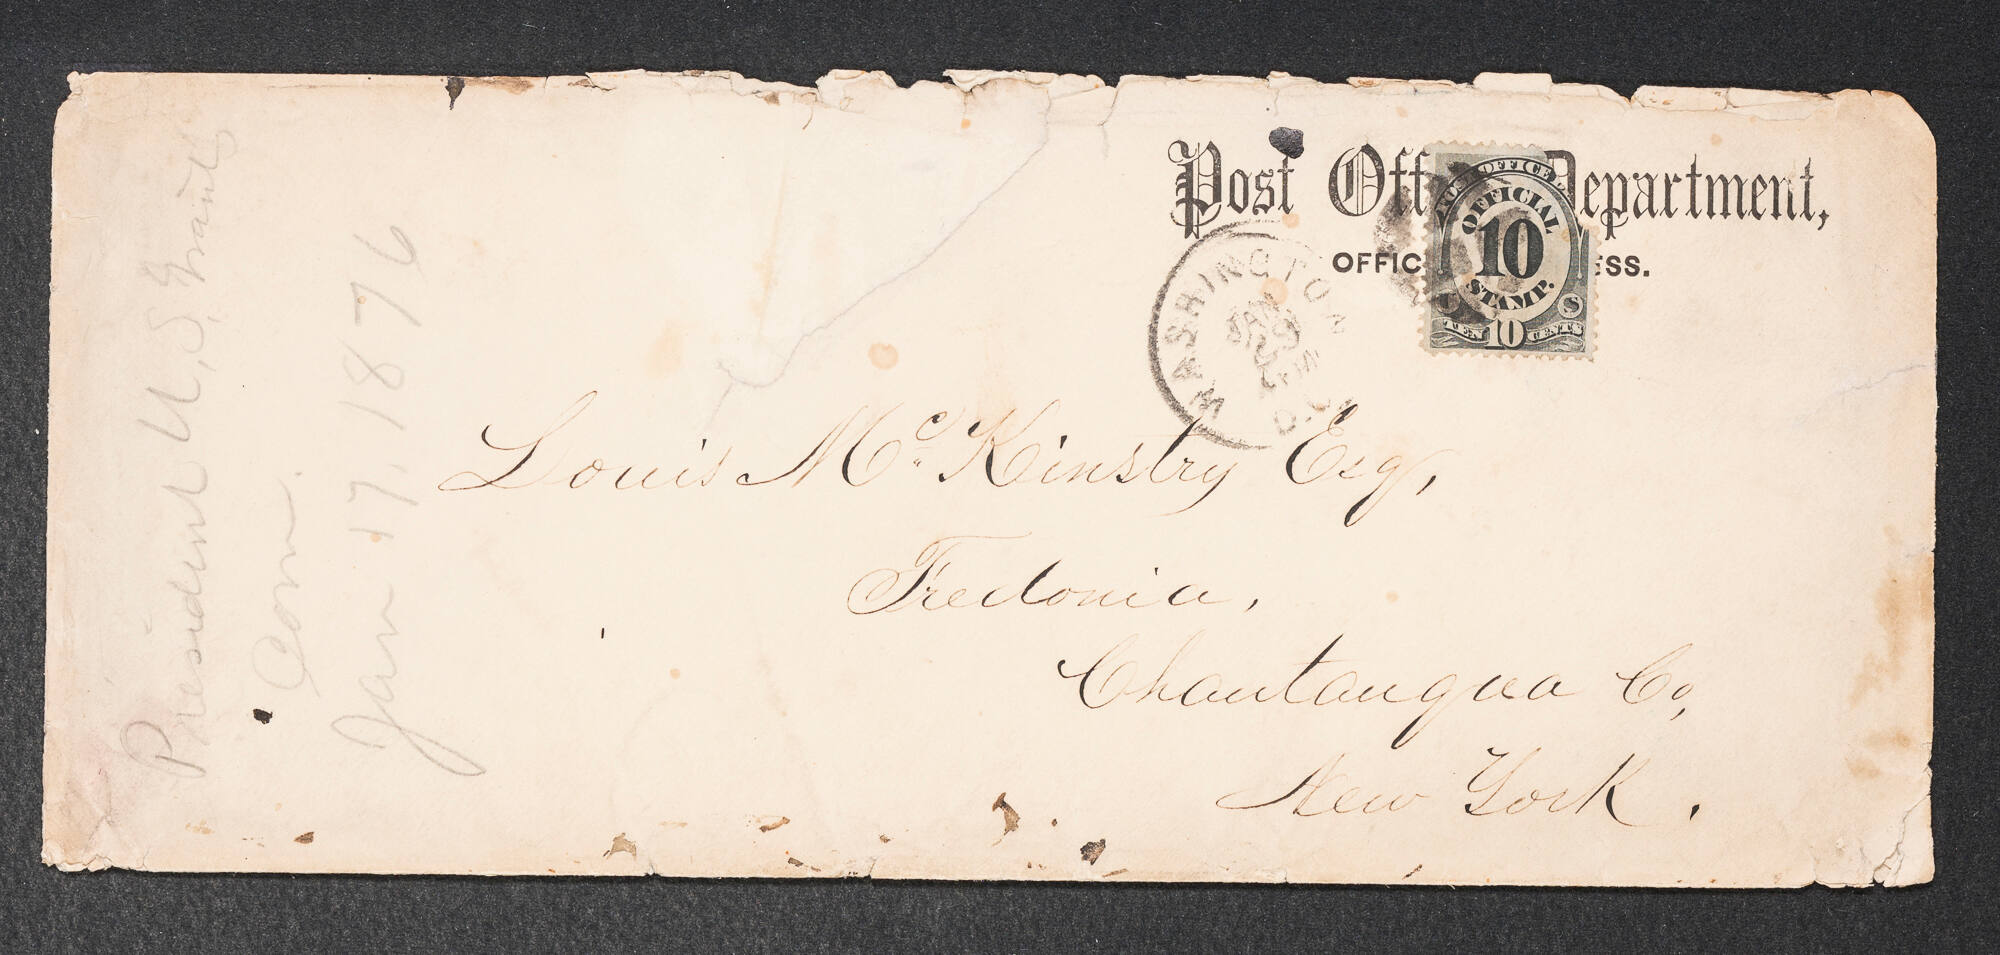 Post Off Department,
OFFIC ESS.
POST OFFICE
OFFICIAL
10
STAMP.
U S
TEN 10 CENTS
WASHINGTON
JAN
D.C.
Louis McKinstry Esq,
Fredonia,
Chautauqua Co,
New York.
President U, S, Grant's
Com.
Jan 17, 1876